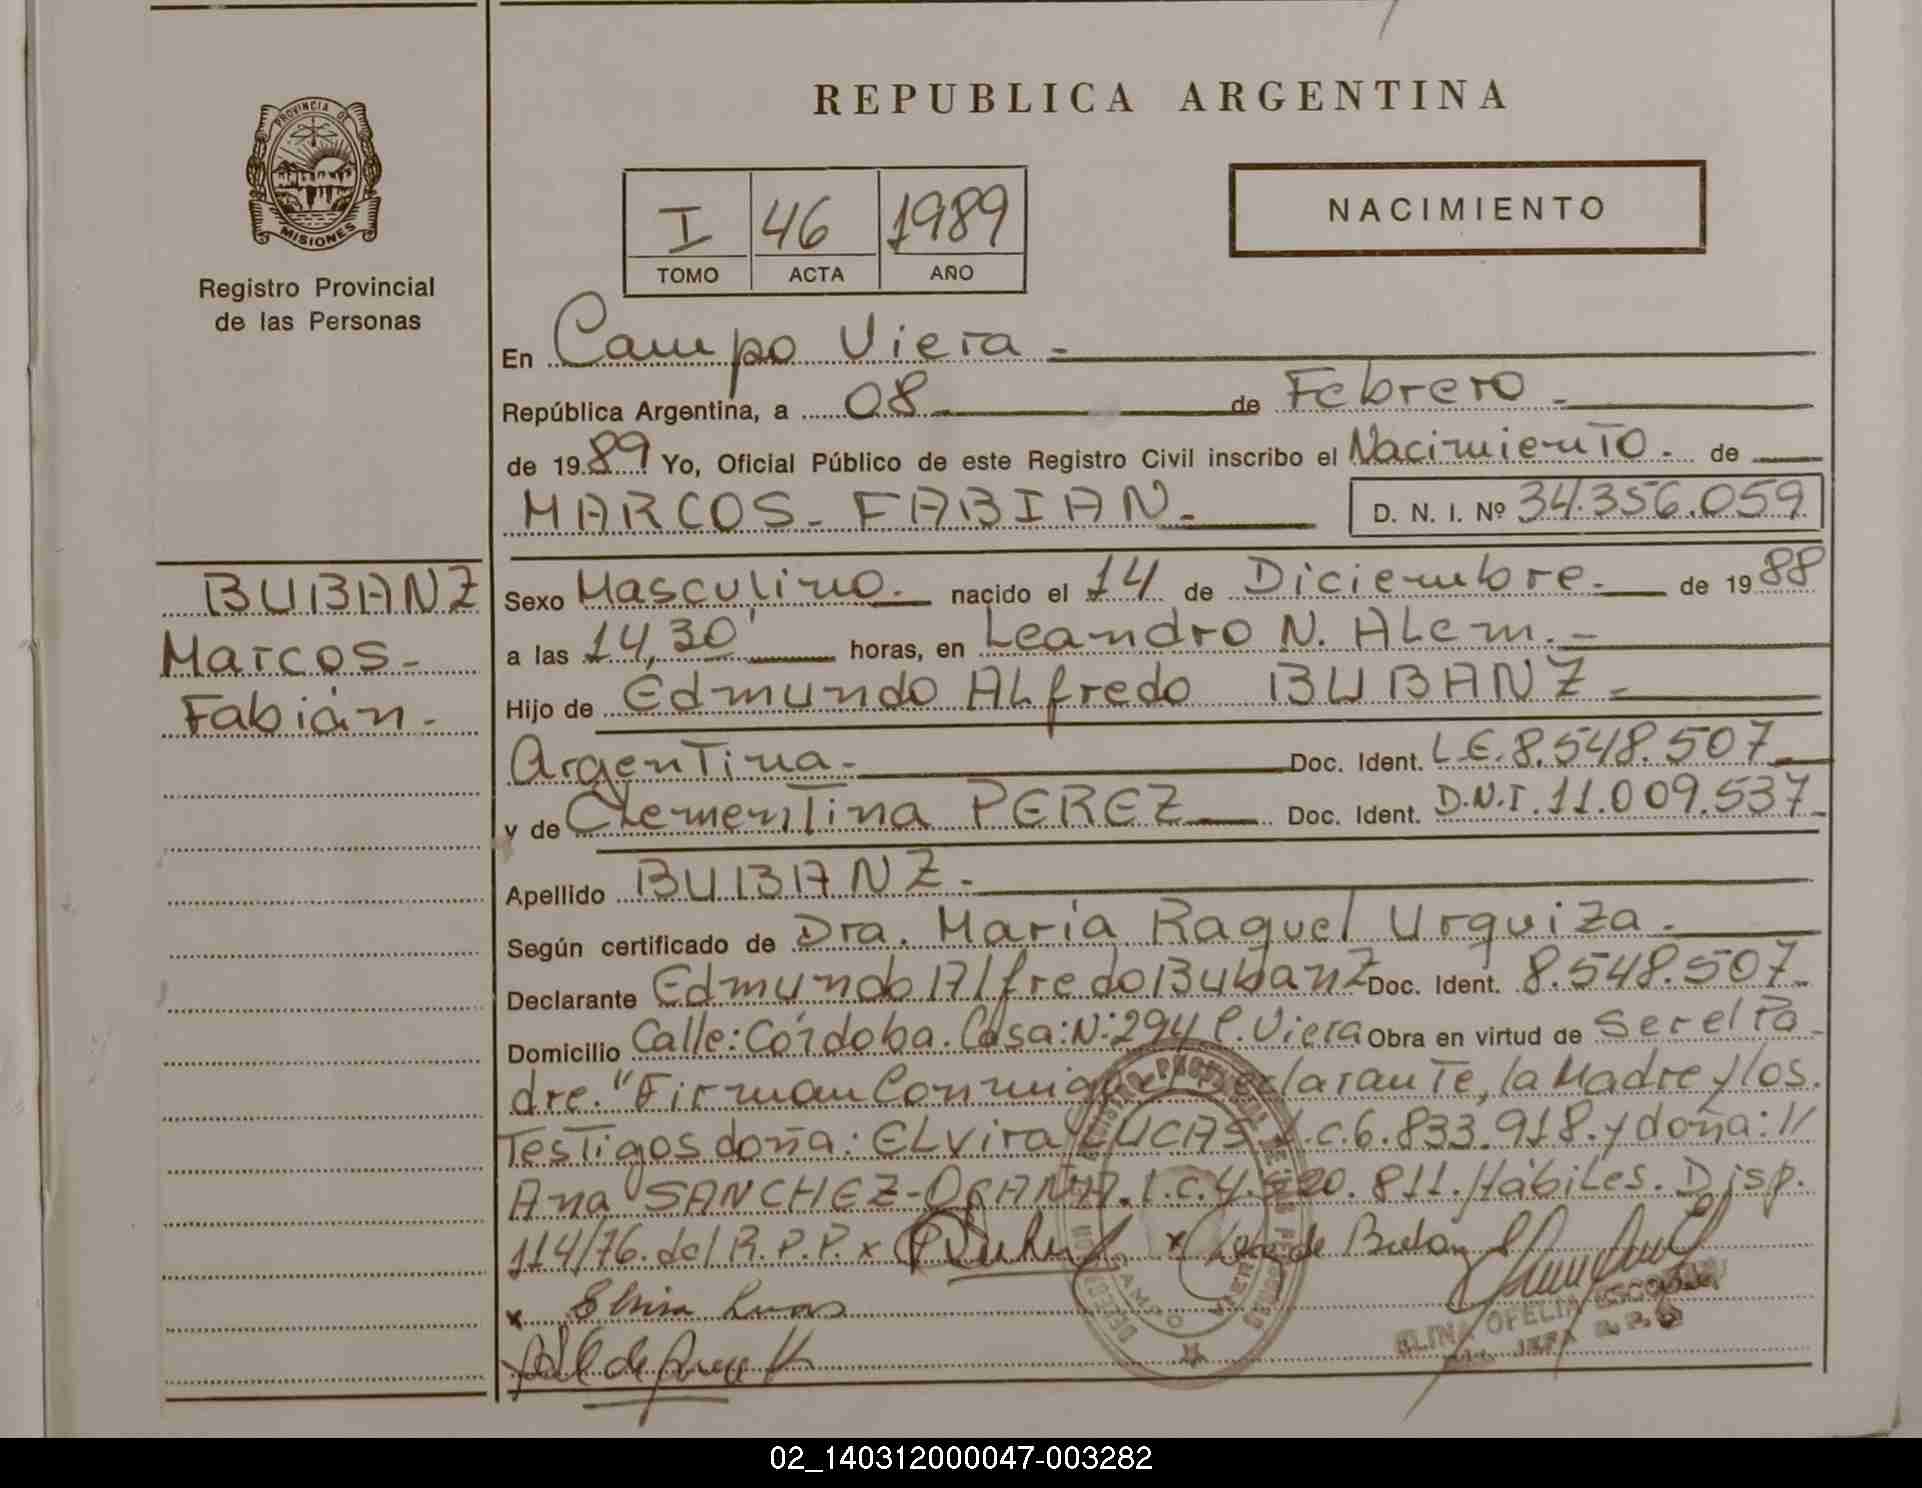 REPUBLICA ARGENTINA
PROVINCIA DE
MISIONES
Registro Provincial
de las Personas
I 46 1989
TOMO ACTA AÑO
NACIMIENTO
En Campo Viera.-
República Argentina, a 08 de Febrero.-
de 1989 Yo, Oficial Público de este Registro Civil inscribo el Nacimiento. de
MARCOS- FABIAN.- D. N. I. Nº 34.356.059
BUBANZ
Marcos-
Fabián-
Sexo Masculino. nacido el 14 de Diciembre. de 1988
a las 14,30' horas, en Leandro N. ALem.-
Hijo de Edmundo ALfredo BUBANZ-
Argentina- Doc. Ident. L.E.8.548.507
y de CLementina PEREZ Doc. Ident. D.N.I.11.009.537-
Apellido BUBANZ-
Según certificado de Dra. María Raquel Urquiza.
Declarante Edmundo Alfredo Bubanz Doc. Ident. 8.548.507-
Domicilio Calle: Córdoba. Casa: N: 294 C. Viera Obra en virtud de Ser el Pa-
dre." Firman Conmigo declarante, la Madre y los.
Testigos doña: ELvira LUCAS L.C.6.833.918. y doña: //
Ana SANCHEZ- 811. Hábiles. Disp.
114/76. del R.P.P. x x de Bubanz
x Elvira Lucas
ELINA OFELIA